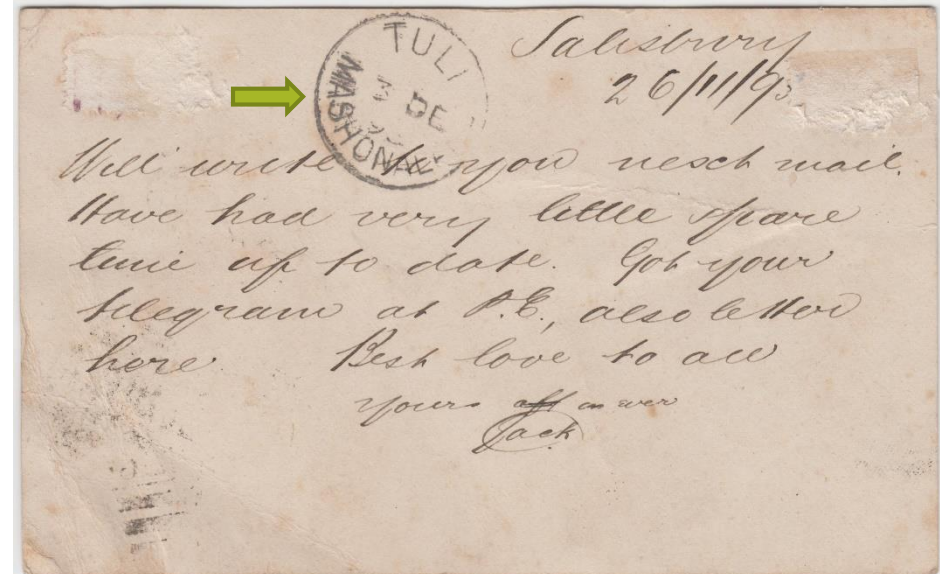 Salisbury
26/11/93
TULI
3 DE
MASHONAL
Will write to you next mail.
Have had very little spare
time up to date. Got your
telegram at P.E., also letter
here Best love to all
yours aff as ever
Jack